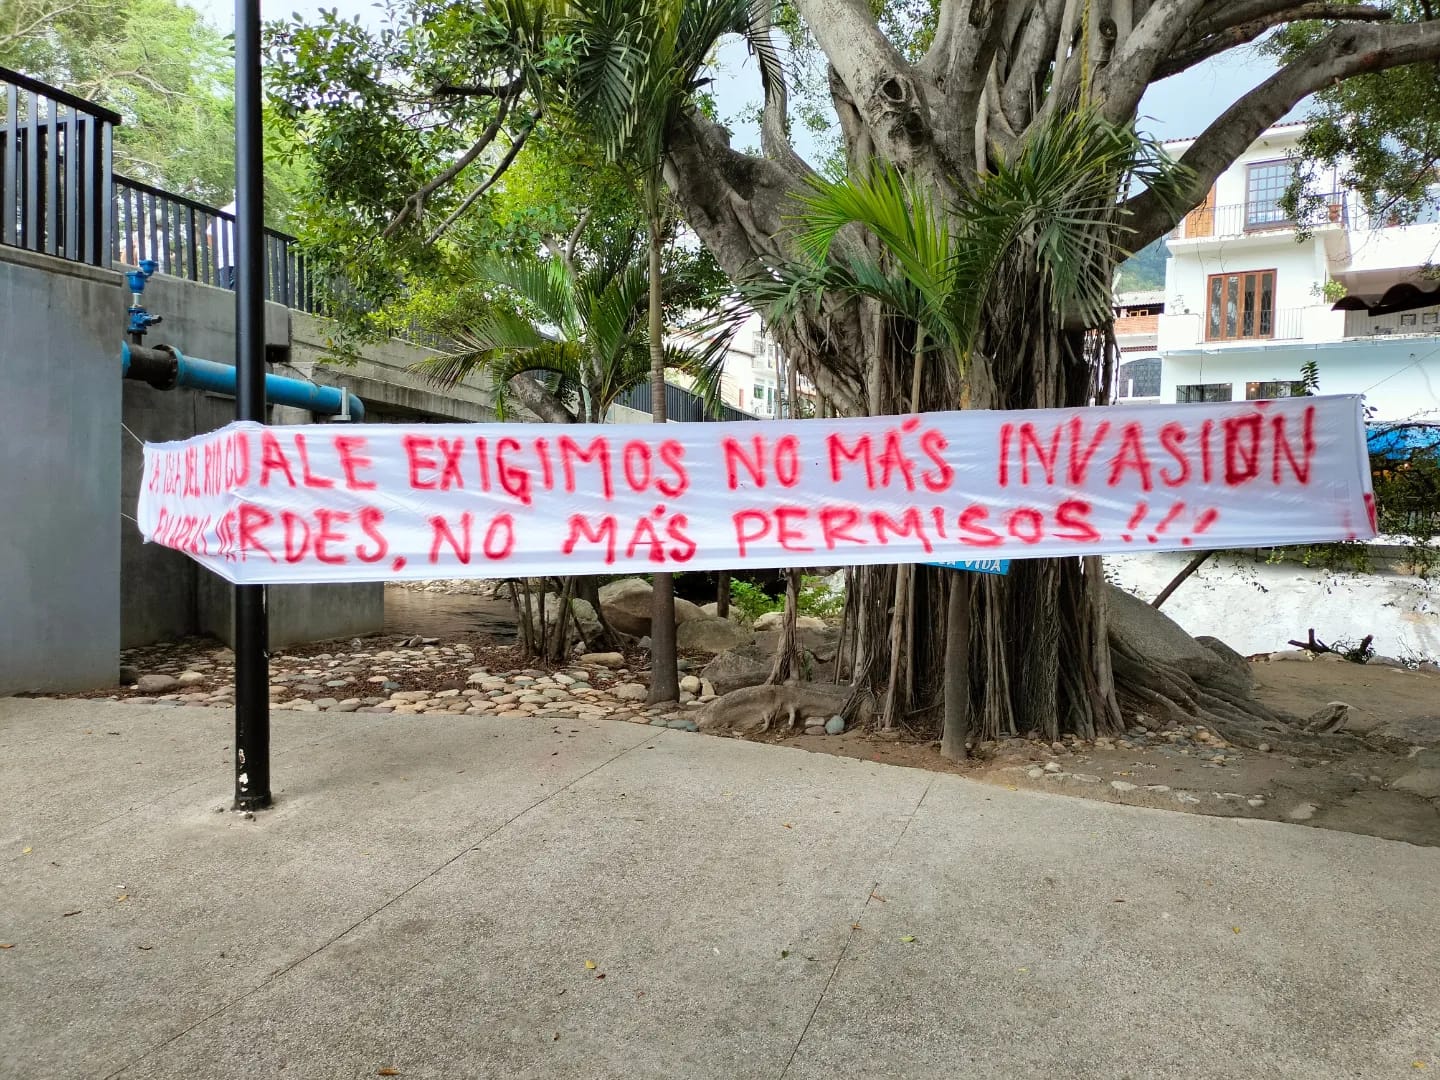 LA ISLA DEL RIO CUALE EXIGIMOS NO MÁS INVASIÓN
EN AREAS VERDES, NO MÁS PERMISOS!!!
LA VIDA